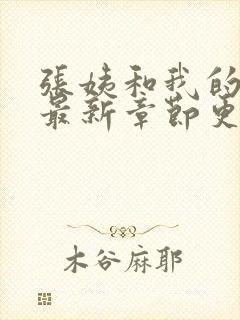 張姨和我的
最新章節更
木谷麻耶